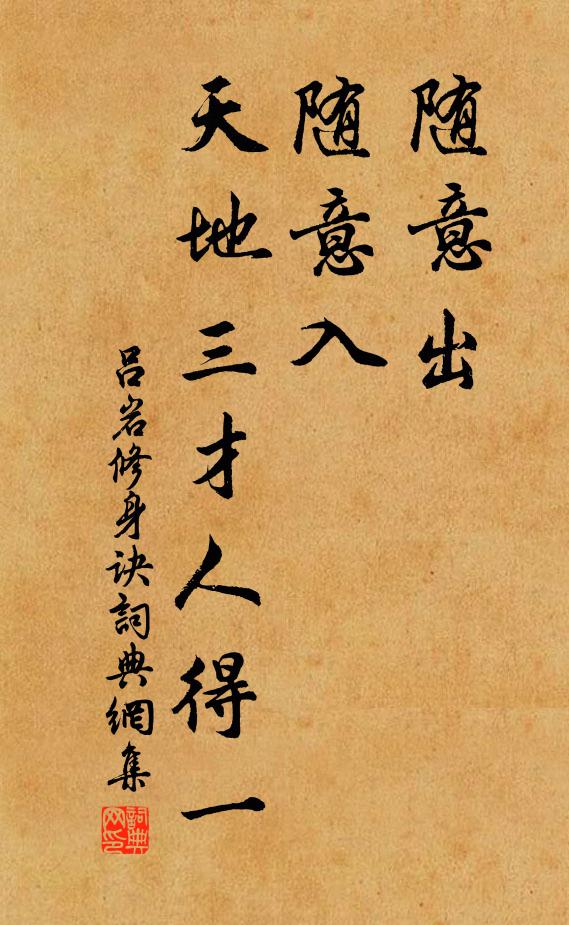 随意出
随意入
天地三才人得一
吕岩修身诀詞典網集
詞典网印